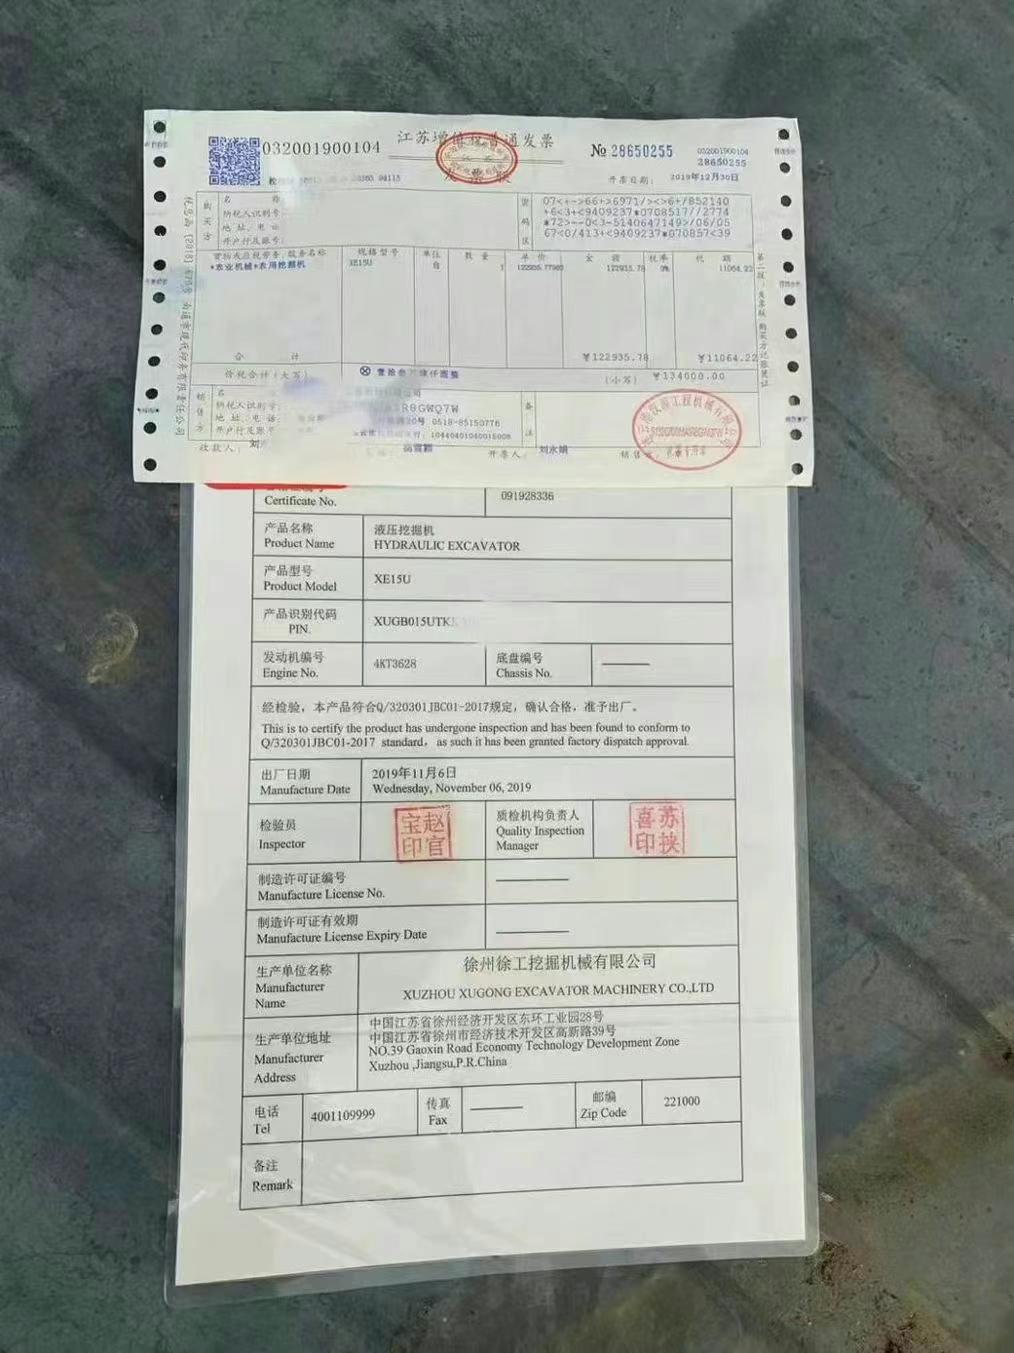 江苏增值税普通发票
032001900104
№ 28650255
032001900104
28650255
开票日期: 2019年12月30日
购买方
名 称:
纳税人识别号:
地 址、电 话:
开户行及账号:
密码区
07<+->66+>6971/><>6+/852140
+6<3+<9409237*0708517//2774
*72>--0<3-5140647149>/06/05
67<0/413+<9409237*070857<39
货物或应税劳务、服务名称 规格型号 单位 数 量 单 价 金 额 税率 税 额
*农业机械*农用挖掘机 XE15U 台 1 122935.77982 122935.78 9% 11064.22
合 计 ¥122935.78 ¥11064.22
价税合计(大写) (小写) ¥134000.00
销售方
名 称:
纳税人识别号: R0GWQ7W
地 址、电 话: 20号 0518-85150776
开户行及账号: 10440401040015008
备注
收款人: 开票人: 刘永娟
第二联:发票联 购买方记账凭证
Certificate No. 091928336
产品名称 液压挖掘机
Product Name HYDRAULIC EXCAVATOR
产品型号
Product Model XE15U
产品识别代码
PIN. XUGB015UTK
发动机编号 4KT3628 底盘编号
Engine No. Chassis No.
经检验，本产品符合Q/320301JBC01-2017规定，确认合格，准予出厂。
This is to certify the product has undergone inspection and has been found to conform to
Q/320301JBC01-2017 standard, as such it has been granted factory dispatch approval.
出厂日期 2019年11月6日
Manufacture Date Wednesday, November 06, 2019
检验员
Inspector
赵官宝印
质检机构负责人
Quality Inspection
Manager
苏挟喜印
制造许可证编号
Manufacture License No.
制造许可证有效期
Manufacture License Expiry Date
生产单位名称 徐州徐工挖掘机械有限公司
Manufacturer
Name XUZHOU XUGONG EXCAVATOR MACHINERY CO.,LTD
生产单位地址
Manufacturer
Address
中国江苏省徐州经济开发区东环工业园28号
中国江苏省徐州市经济技术开发区高新路39号
NO.39 Gaoxin Road Economy Technology Development Zone
Xuzhou ,Jiangsu,P.R.China
电话 4001109999 传真 邮编 221000
Tel Fax Zip Code
备注
Remark